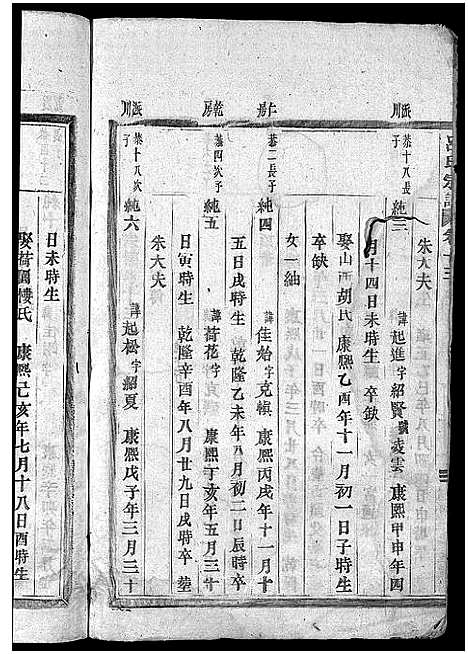 呂氏宗譜 卷十三
派川
朱大夫
恭十八長子
純三 諱起進字紹賢號凌雲 康熙甲申年四
月十四日未時生 卒缺
娶山西胡氏 康熙乙酉年十一月初一日子時生
卒缺
女一岫
仁房
恭二長子
純四 諱佳始字克禎 康熙丙戌年十一月十
五日戌時生 乾隆乙未年八月初二日辰時卒
乾房
恭四次子
純五 諱荷花字 康熙丁亥年五月三十
日寅時生 乾隆辛酉年八月廿九日戌時卒 塟
朱大夫
派川
恭十八次子
純六 諱起松字紹夏 康熙戊子年三月三十
日未時生
娶荷園樓氏 康熙己亥年七月十八日酉時生